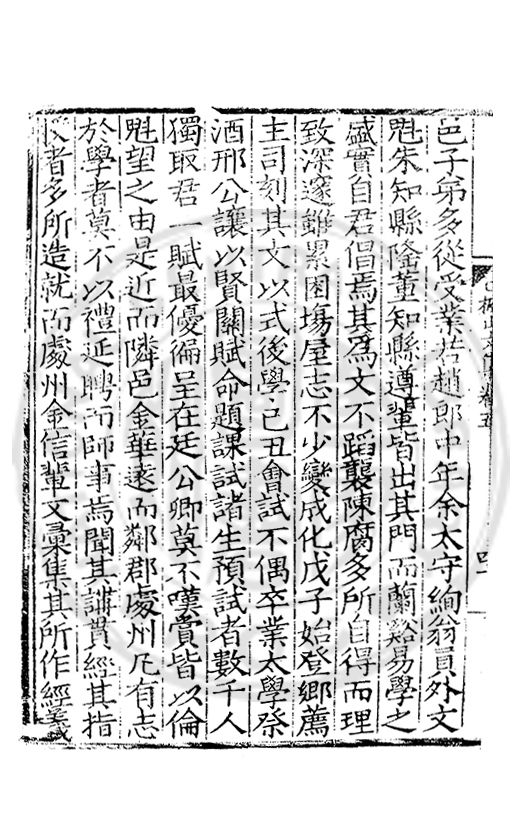 邑子弟多從受業若趙郎中年余太守絢翁員外文
魁朱知縣隆董知縣遵輩皆出其門而蘭谿易學之
盛實自君倡焉其爲文不蹈襲陳腐多所自得而理
致深邃雖累困場屋志不少變成化戊子始登鄉薦
主司刻其文以式後學己丑會試不偶卒業太學祭
酒邢公讓以賢關賦命題課試諸生預試者數千人
獨取君一賦最優徧呈在廷公卿莫不嘆賞皆以倫
魁望之由是近而隣邑金華遠而鄰郡處州凡有志
於學者莫不以禮延聘而師事焉聞其講貫經其指
者多所造就而處州金信輩文彙集其所作經義
山文集卷五